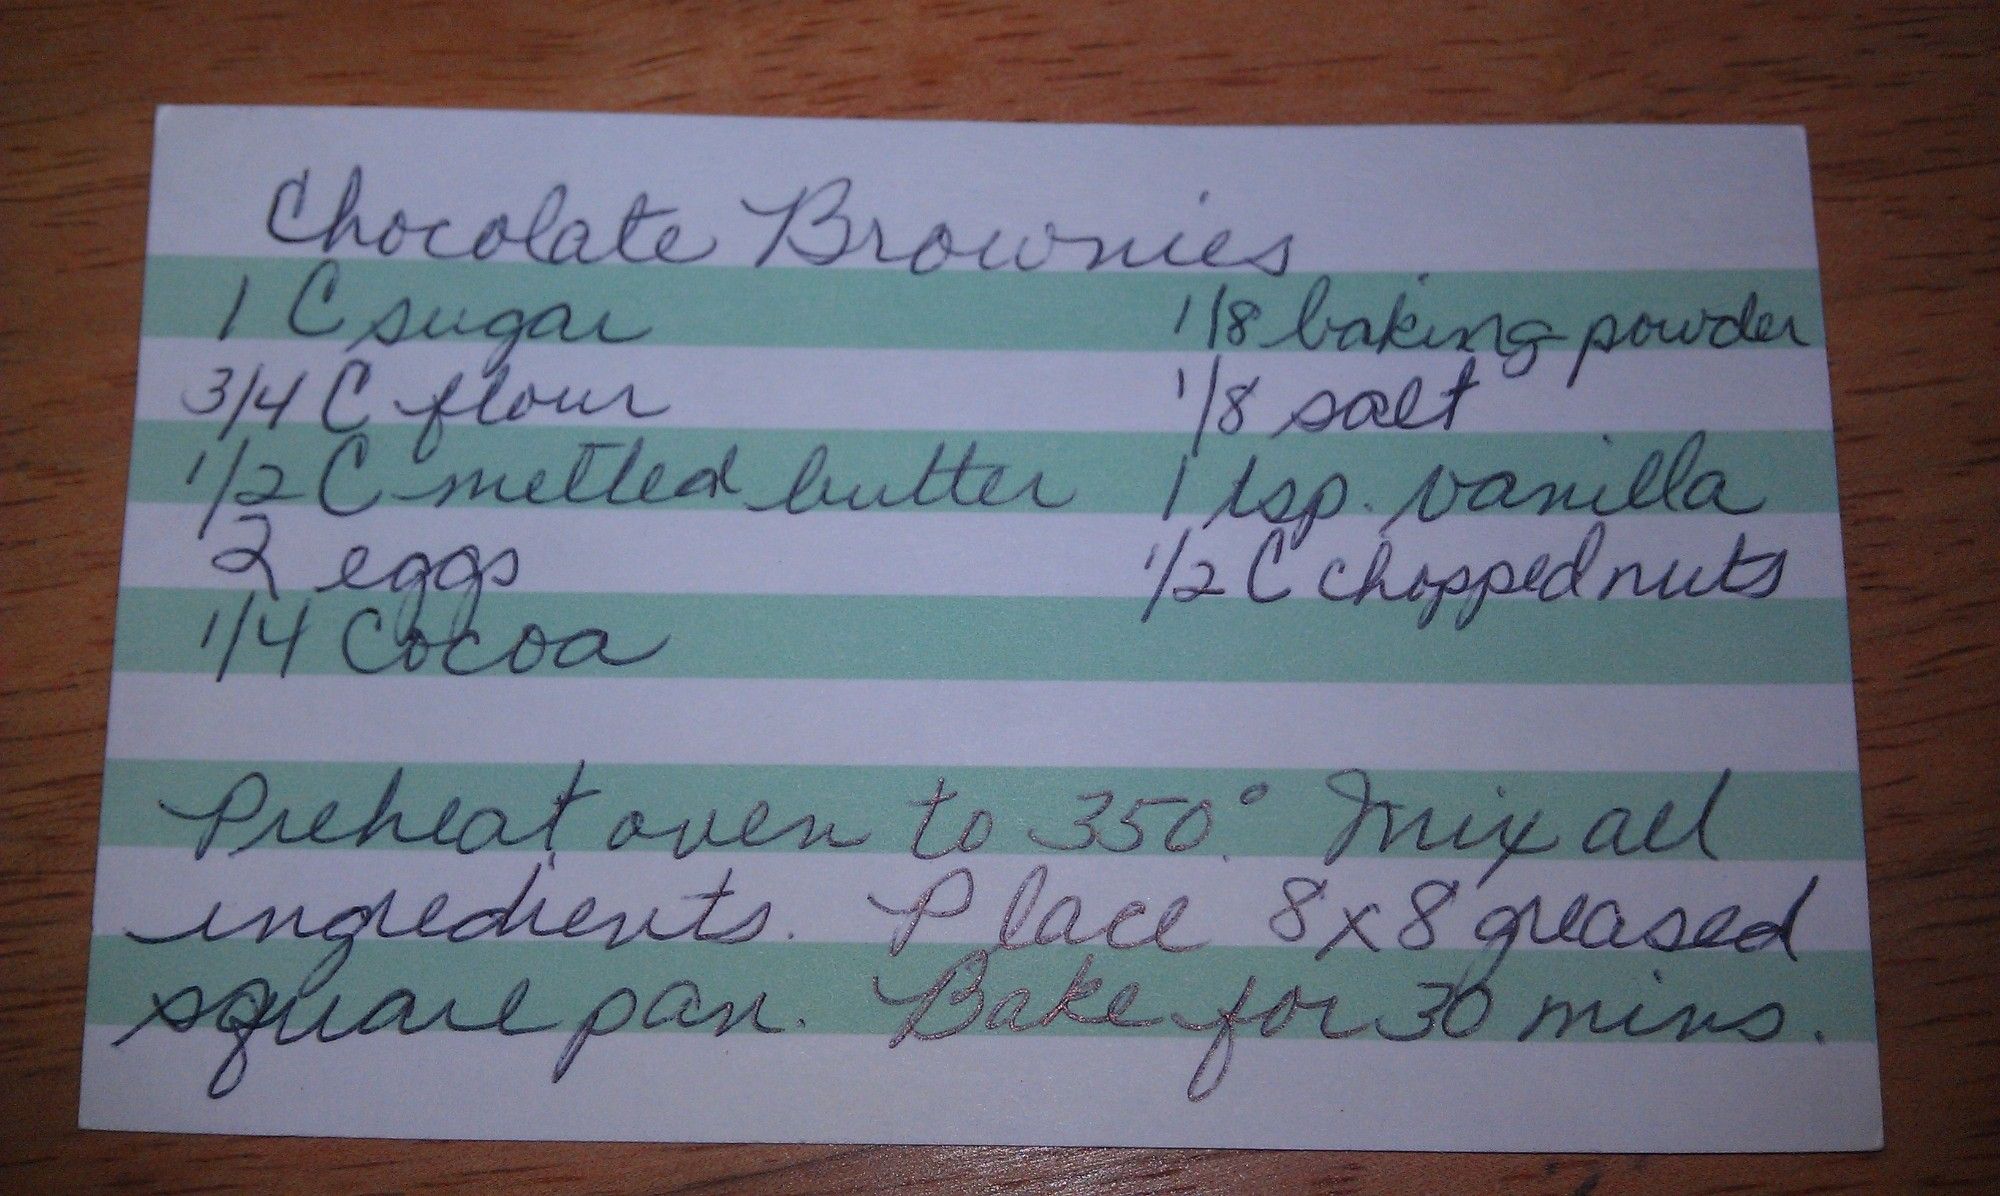 Chocolate Brownies
1 C sugar
3/4 C flour
1/2 C metled butter
2 eggs
1/4 Cocoa
1/8 baking powder
1/8 salt
1 tsp. vanilla
1/2 C chopped nuts
Preheat oven to 350°. Mix all
ingredients. Place 8x8 greased
square pan. Bake for 30 mins.